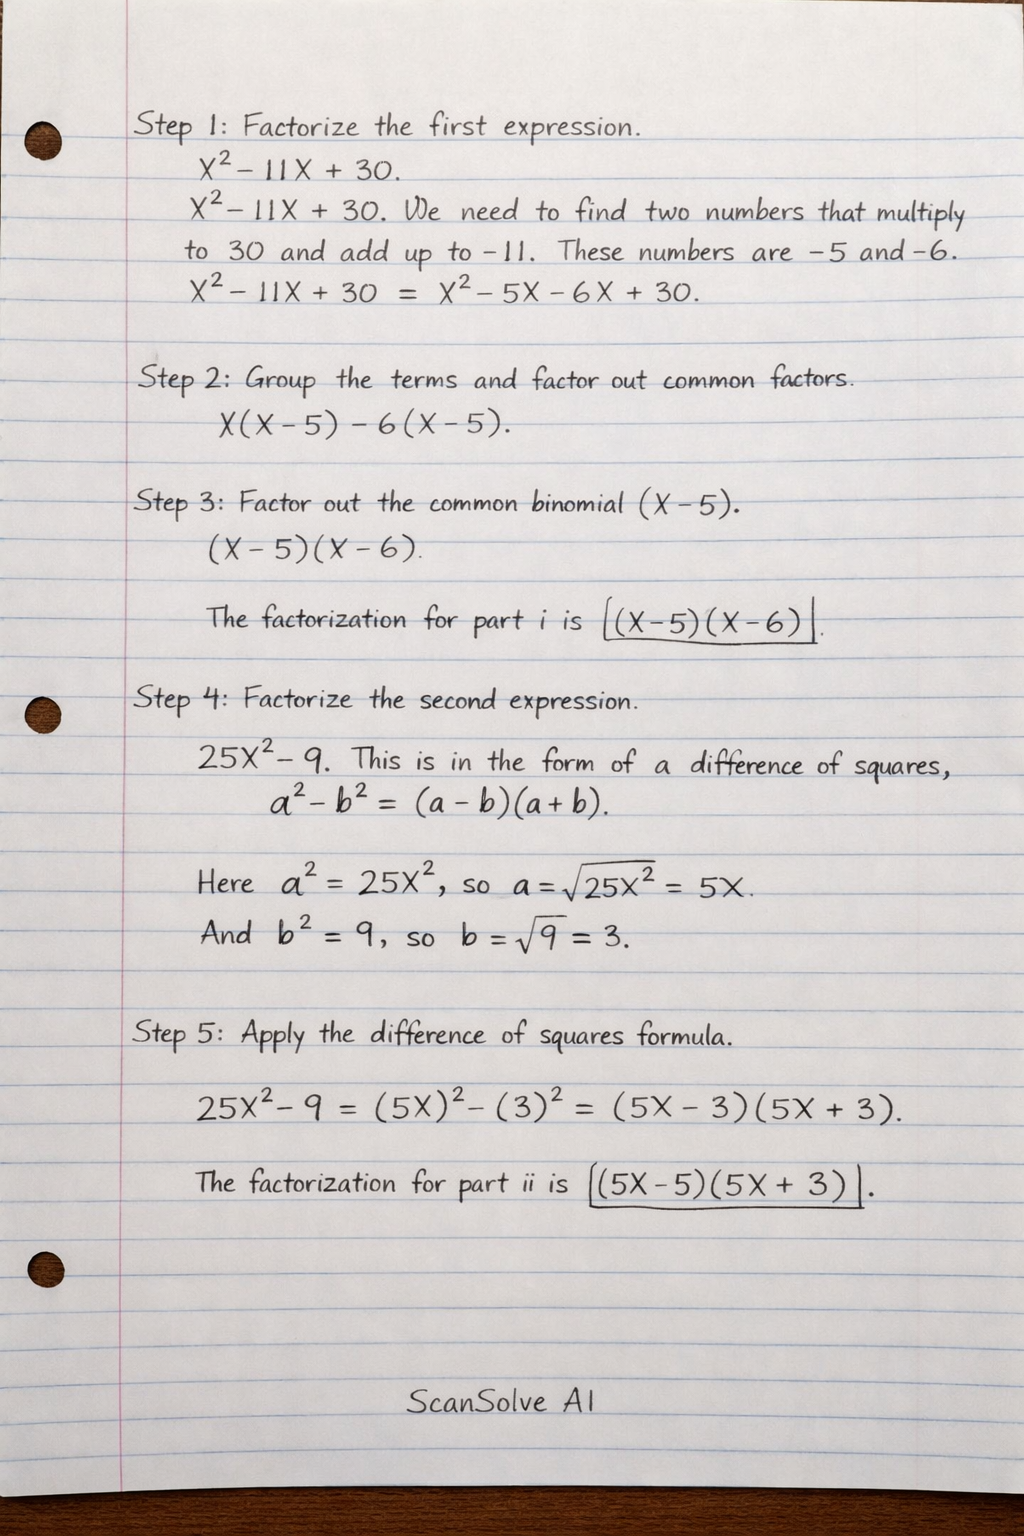 Step 1: Factorize the first expression.
X² - 11X + 30.
X² - 11X + 30. We need to find two numbers that multiply
to 30 and add up to -11. These numbers are -5 and -6.
X² - 11X + 30 = X² - 5X - 6X + 30.
Step 2: Group the terms and factor out common factors.
X(X - 5) - 6(X - 5).
Step 3: Factor out the common binomial (X - 5).
(X - 5)(X - 6).
The factorization for part i is |(X-5)(X-6)|.
Step 4: Factorize the second expression.
25X² - 9. This is in the form of a difference of squares,
a² - b² = (a - b)(a + b).
Here a² = 25X², so a = √25X² = 5X.
And b² = 9, so b = √9 = 3.
Step 5: Apply the difference of squares formula.
25X² - 9 = (5X)² - (3)² = (5X - 3)(5X + 3).
The factorization for part ii is |(5X-5)(5X + 3)|.
ScanSolve AI